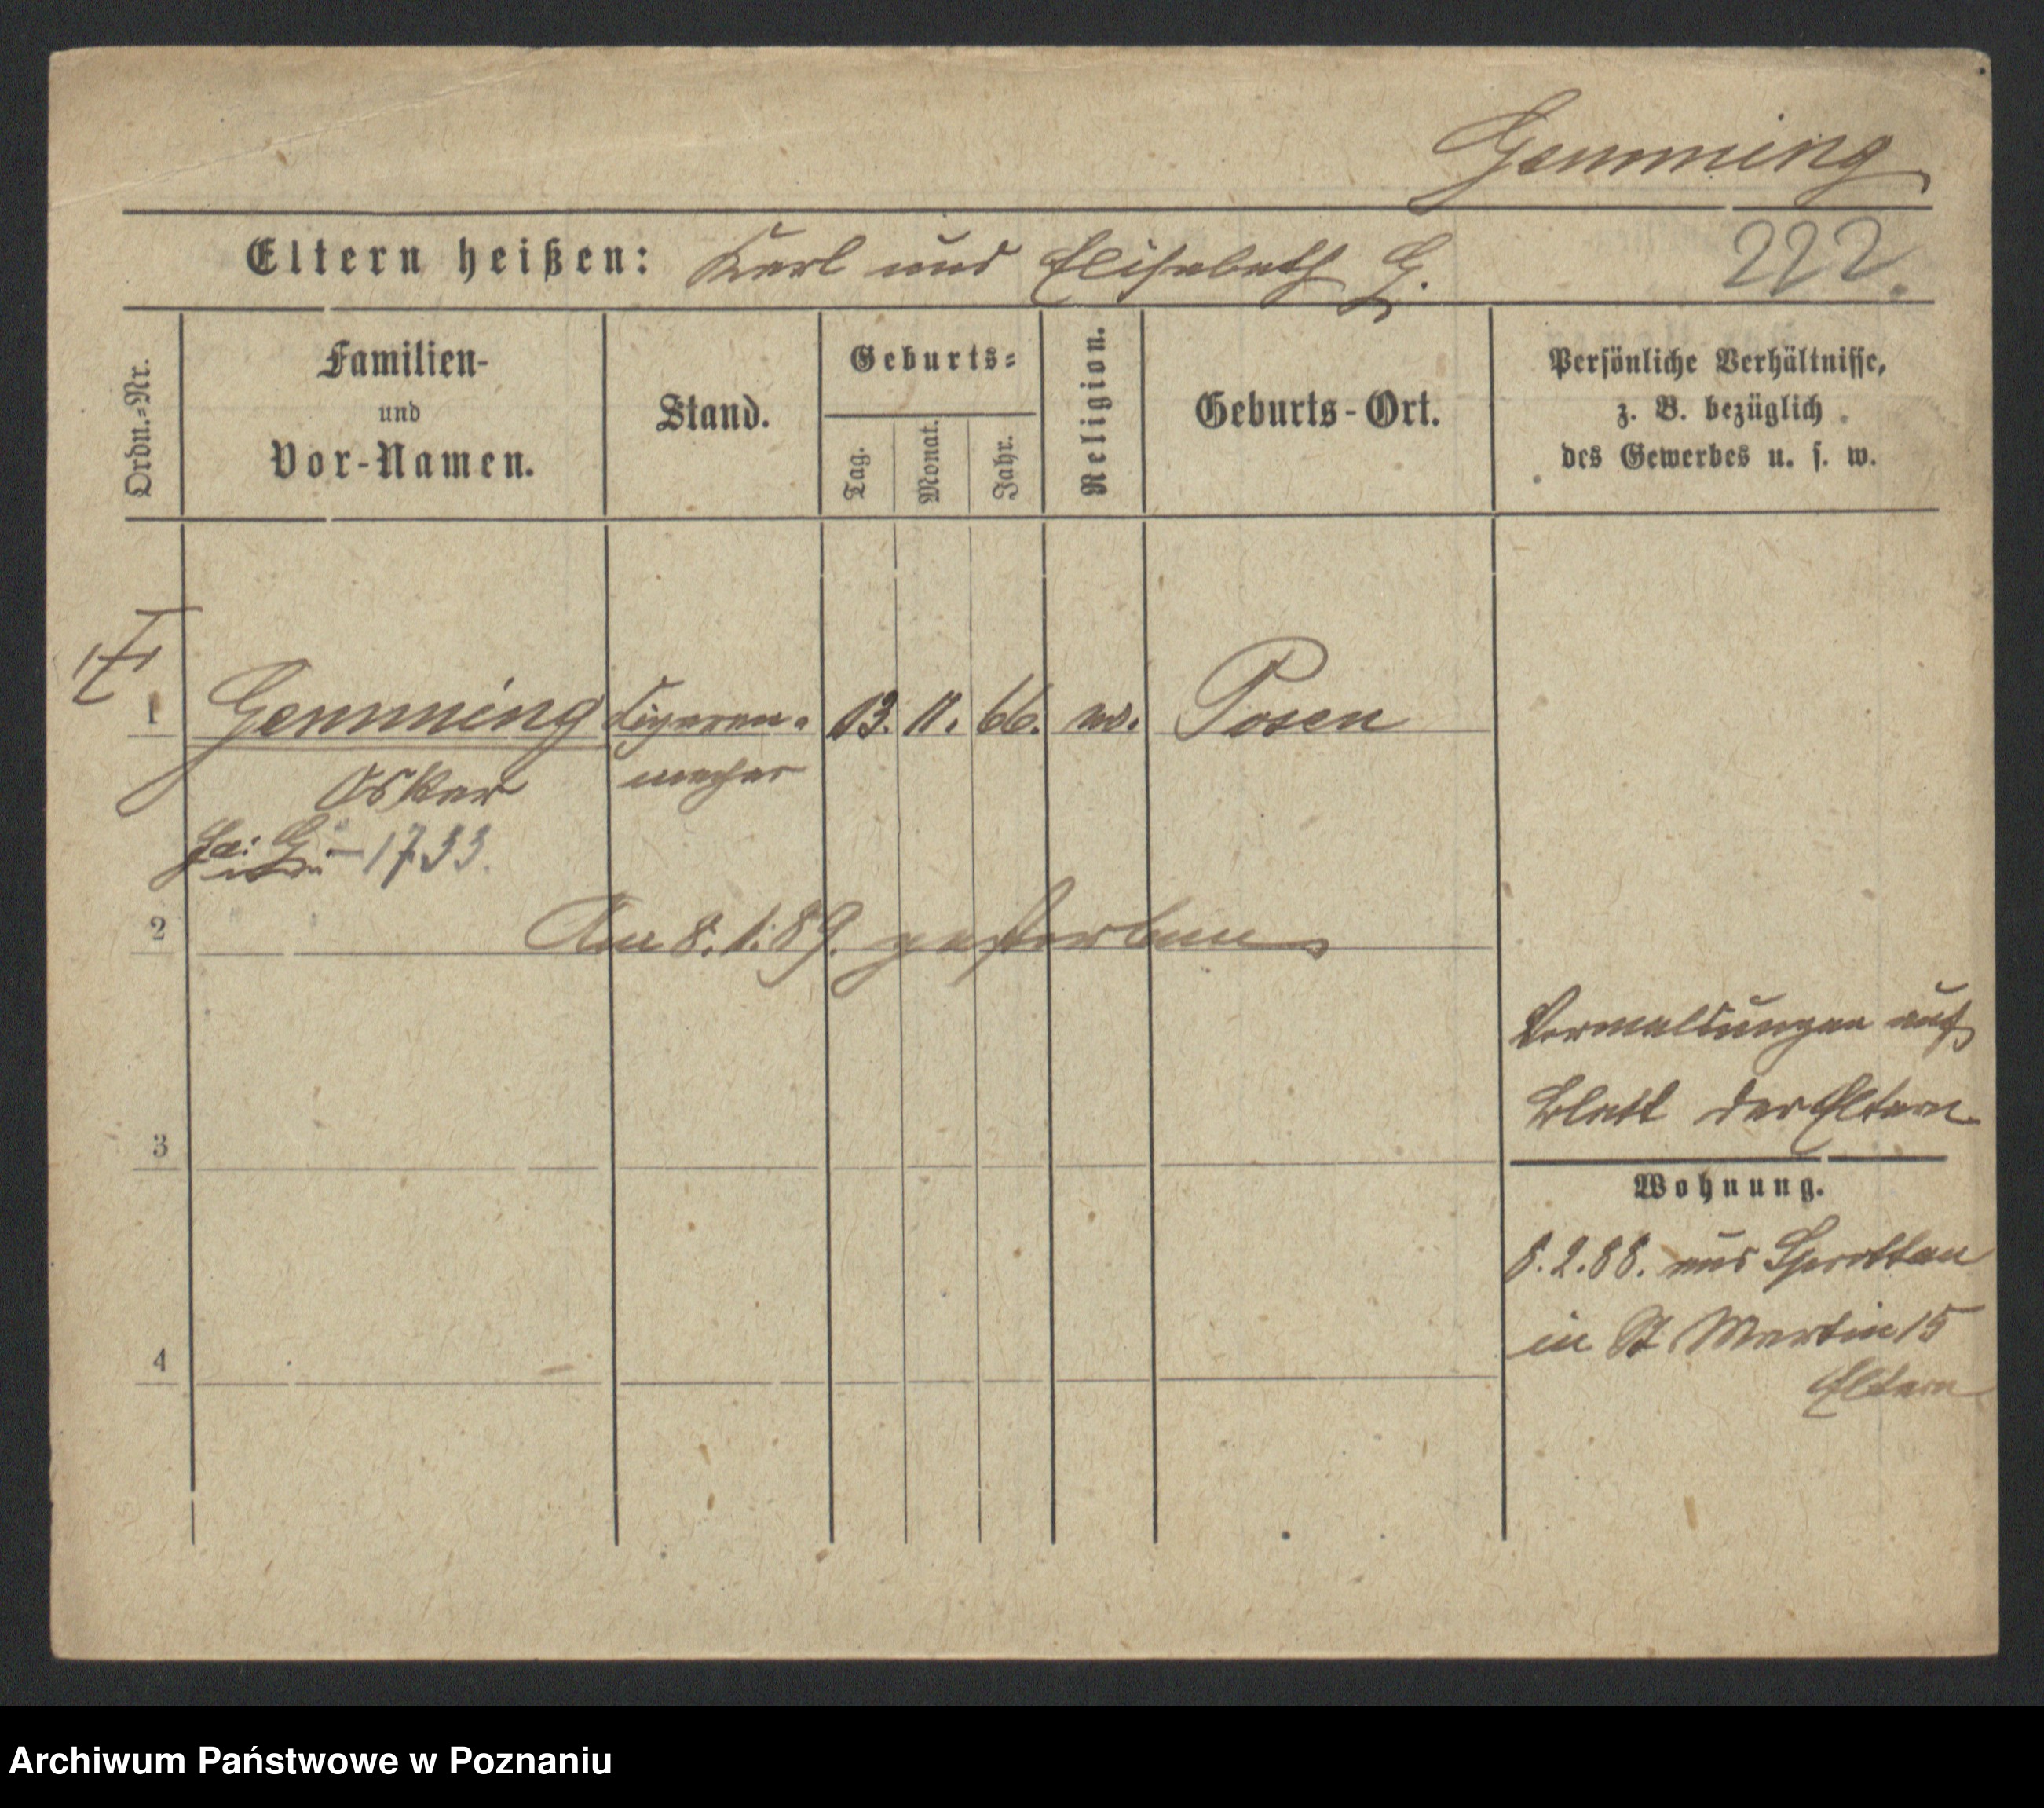 Gemming
Eltern heißen: Karl und Elisabeth G.
222.
Ordn.=Nr.
Familien-
und
Vor-Namen.
Stand.
Geburts=
Tag.
Monat.
Jahr.
Religion.
Geburts-Ort.
Persönliche Verhältnisse,
z. B. bezüglich
des Gewerbes u. s. w.
1 Gemming Cigarren- 13. 11. 66. Posen
Oskar macher
1733.
2 Am 8. 1. 89. gestorben
Vermeldungen auf
Blatt der Eltern
3
Wohnung.
8. 2. 88. aus Sprottau
in St Martin 15
4
Eltern
Archiwum Państwowe w Poznaniu